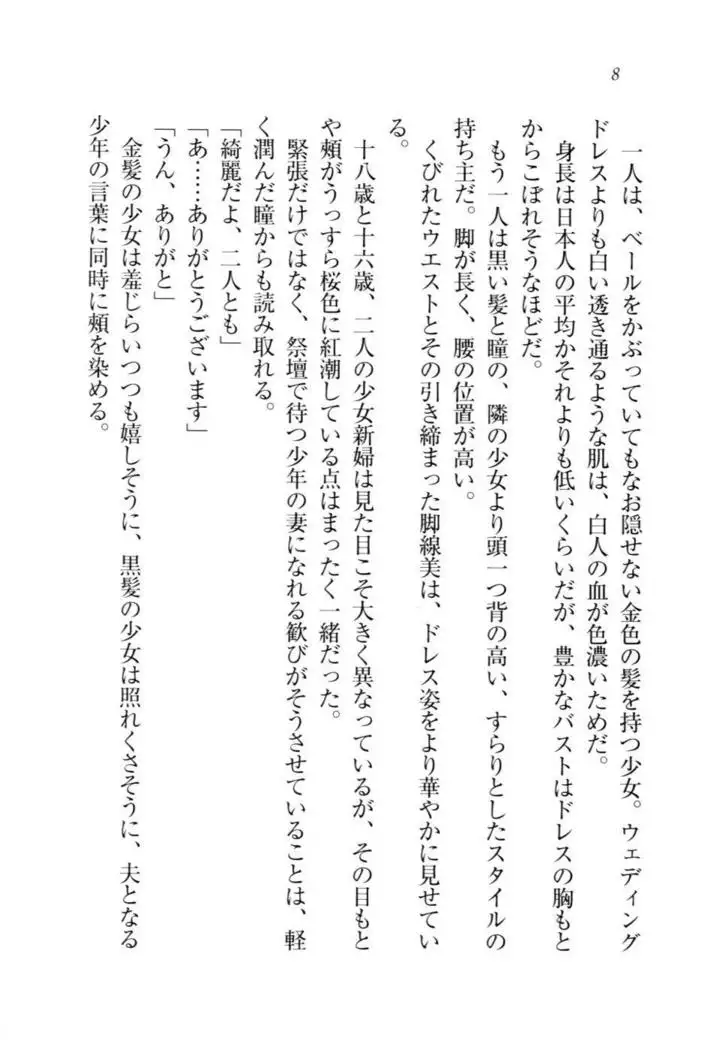 8
一人は、ベールをかぶっていてもなお隠せない金色の髪を持つ少女。ウェディング
ドレスよりも白い透き通るような肌は、白人の血が色濃いためだ。
身長は日本人の平均かそれよりも低いくらいだが、豊かなバストはドレスの胸もと
からこぼれそうなほどだ。
もう一人は黒い髪と瞳の、隣の少女より頭一つ背の高い、すらりとしたスタイルの
持ち主だ。脚が長く、腰の位置が高い。
くびれたウエストとその引き締まった脚線美は、ドレス姿をより華やかに見せてい
る。
十八歳と十六歳、二人の少女新婦は見た目こそ大きく異なっているが、その目もと
や頬がうっすら桜色に紅潮している点はまったく一緒だった。
緊張だけではなく、祭壇で待つ少年の妻になれる歓びがそうさせていることは、軽
く潤んだ瞳からも読み取れる。
「綺麗だよ、二人とも」
「あ……ありがとうございます」
「うん、ありがと」
金髪の少女は羞じらいつつも嬉しそうに、黒髪の少女は照れくさそうに、夫となる
少年の言葉に同時に頬を染める。